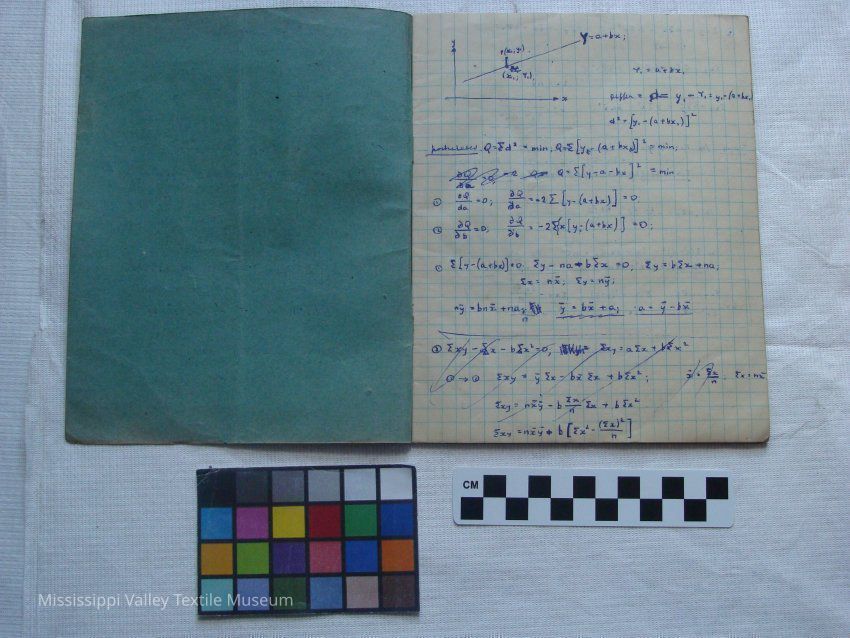 Y = a + bx;
y
P(x₁, y₁)
(x₁, Y₁)
x
Y₁ = a + bx₁
= y₁ - Y₁ = y₁ - (a + bx₁)
d² = [y₁ - (a + bx₁)]²
Q = Σd² = min; Q = Σ[y₁ - (a + bx₁)]² = min;
Q = Σ[y - a - bx]² = min
① ∂Q/∂a = 0; ∂Q/∂a = -2Σ[y - (a + bx)] = 0
② ∂Q/∂b = 0; ∂Q/∂b = -2Σx[y - (a + bx)] = 0;
① Σ[y - (a + bx)] = 0 Σy - na - bΣx = 0, Σy = bΣx + na;
Σx = nx̄; Σy = nȳ;
nȳ = bnx̄ + na; ȳ = bx̄ + a; a = ȳ - bx̄
② Σxy - aΣx - bΣx² = 0; Σxy = aΣx + bΣx²
① → ② Σxy = ȳΣx - bx̄Σx + bΣx²; x̄ = Σx/n Σx = nx̄
Σxy = nx̄ȳ - b Σx/n Σx + bΣx²
Σxy = nx̄ȳ + b[Σx² - (Σx)²/n]
CM
Mississippi Valley Textile Museum